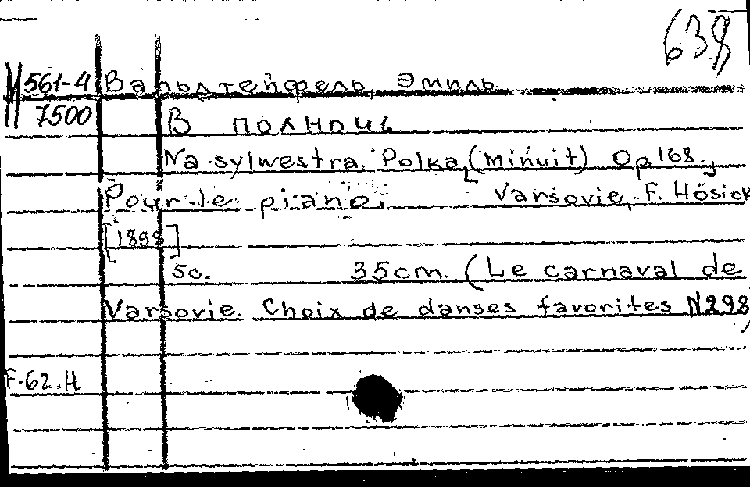 638
М 561-4 Вальдтейфель, Эмиль
7500 В полночь
Na sylwestra. Polka. (Minuit) Op 168.
Pour le piano. Varsovie, F. Hösick
[1898]
5c. 35cm. (Le carnaval de
Varsovie. Choix de danses favorites N298)
F-62.H